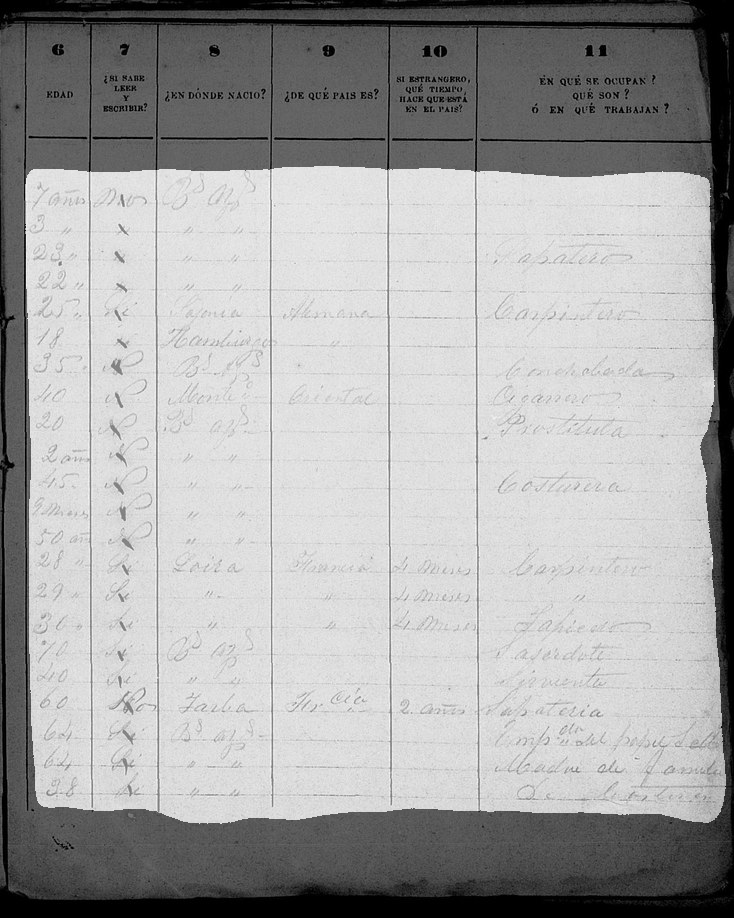 6 7 8 9 10 11
EDAD ¿SI SABE LEER Y ESCRIBIR? ¿EN DÓNDE NACIO? ¿DE QUÉ PAIS ES? SI ESTRANGERO, QUÉ TIEMPO, HACE QUE ESTÁ EN EL PAIS? EN QUÉ SE OCUPAN? QUÉ SON? Ó EN QUÉ TRABAJAN?
7 años Bs Ays
3 " " "
23 " " " Sapatero
22 " " "
25 " Si Sajonia Alemana Carpintero
18 Hamburgo "
35 " N Bs Ays Conchabada
40 N Oriental Cigarrero
20 N Bs Ays Prostituta
2 años N " "
45 N " " Costurera
9 meses N " "
50 añ N " "
28 " Si Loira Francia 4 meses Carpintero
29 " Si " " 4 meses "
30 " Si " " 4 meses
70 Si Bs Ays Saserdote
40 Si " " Sirvienta
60 Tarba Francia 2 años Sapateria
64 Si Bs Ays
64 Si " " Madre de familia
38 Si " "